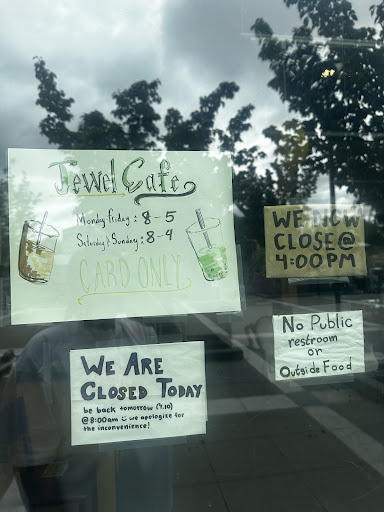 Jewel Cafe
Monday-Friday: 8-5
Saturday & Sunday: 8-4
CARD ONLY
WE NOW
CLOSE @
4:00PM
No Public
restroom
or
Outside Food
WE ARE
CLOSED TODAY
be back tomorrow (7.10)
@ 8:00am we apologize for
the inconvenience!